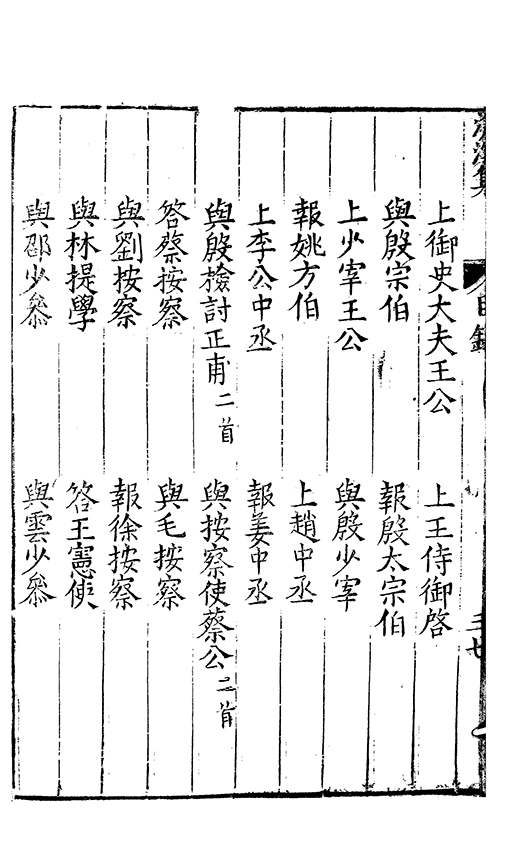 上御史大夫王公　上王侍御啓
與殷宗伯　報殷太宗伯
上少宰王公　與殷少宰
報姚方伯　上趙中丞
上李公中丞　報姜中丞
與殷檢討正甫二首　與按察使蔡公二首
答蔡按察　與毛按察
與劉按察　報徐按察
與林提學　答王憲使
與邵少叅　與雲少叅
目錄